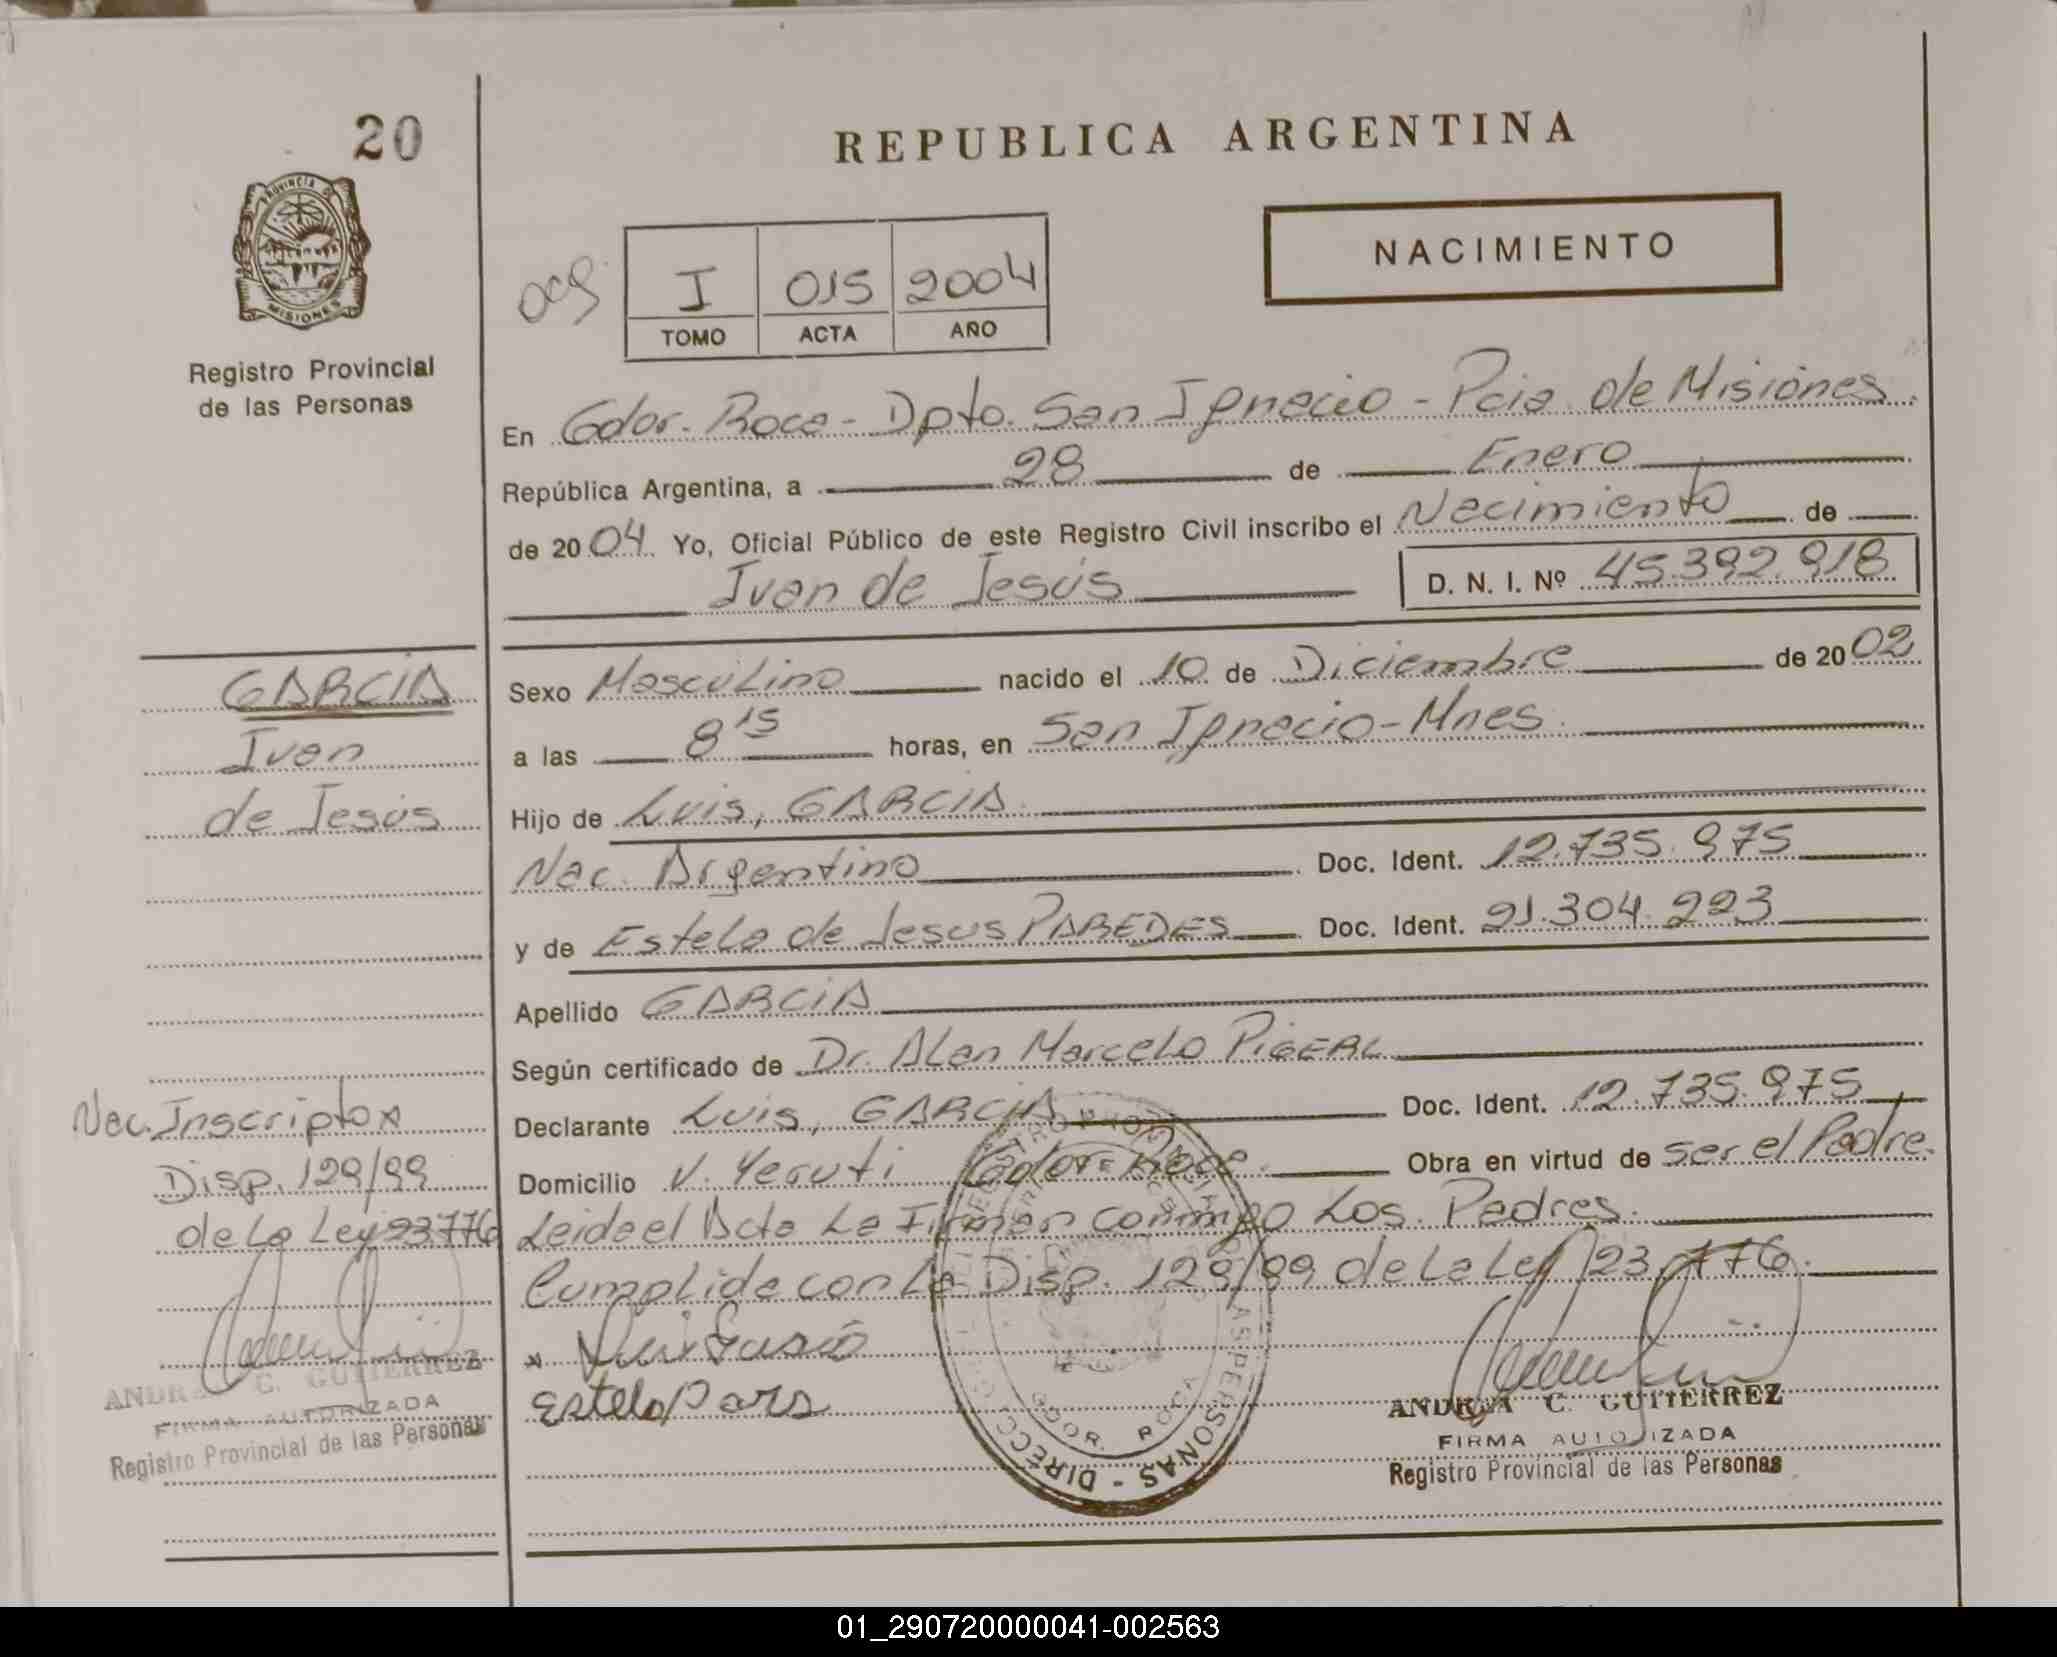 20
REPUBLICA ARGENTINA
NACIMIENTO
009
I 015 2004
TOMO ACTA AÑO
PROVINCIA DE
MISIONES
Registro Provincial
de las Personas
En Gdor. Roca - Dpto. San Ignacio - Pcia de Misiones.
República Argentina, a 28 de Enero
de 2004 Yo, Oficial Público de este Registro Civil inscribo el Nacimiento de
Ivan de Jesús D. N. I. Nº 45.392.918
GARCIA
Ivan
de Jesús
Sexo Masculino nacido el 10 de Diciembre de 2002
a las 8 15 horas, en San Ignacio - Mnes.
Hijo de Luis, GARCIA
Nac. Argentino Doc. Ident. 12.735.975
y de Estela de Jesus PAREDES Doc. Ident. 21.304.223
Apellido GARCIA
Según certificado de Dr. Alan Marcelo
Declarante Luis, GARCIA Doc. Ident. 12.735.975
Domicilio V. Yeruti Gdor Roca. Obra en virtud de ser el Padre.
Leida el Acta La Firman conmigo Los Padres.
Cumplida con La Disp. 129/99 de La Ley 23.776.
Nac. Inscripto x
Disp. 129/99
de La Ley 23776
ANDREA C. GUTIERREZ
FIRMA AUTORIZADA
Registro Provincial de las Personas
x Luis Garcia
Estela
GDOR. ROCA
ANDREA C. GUTIERREZ
FIRMA AUTORIZADA
Registro Provincial de las Personas
01_290720000041-002563